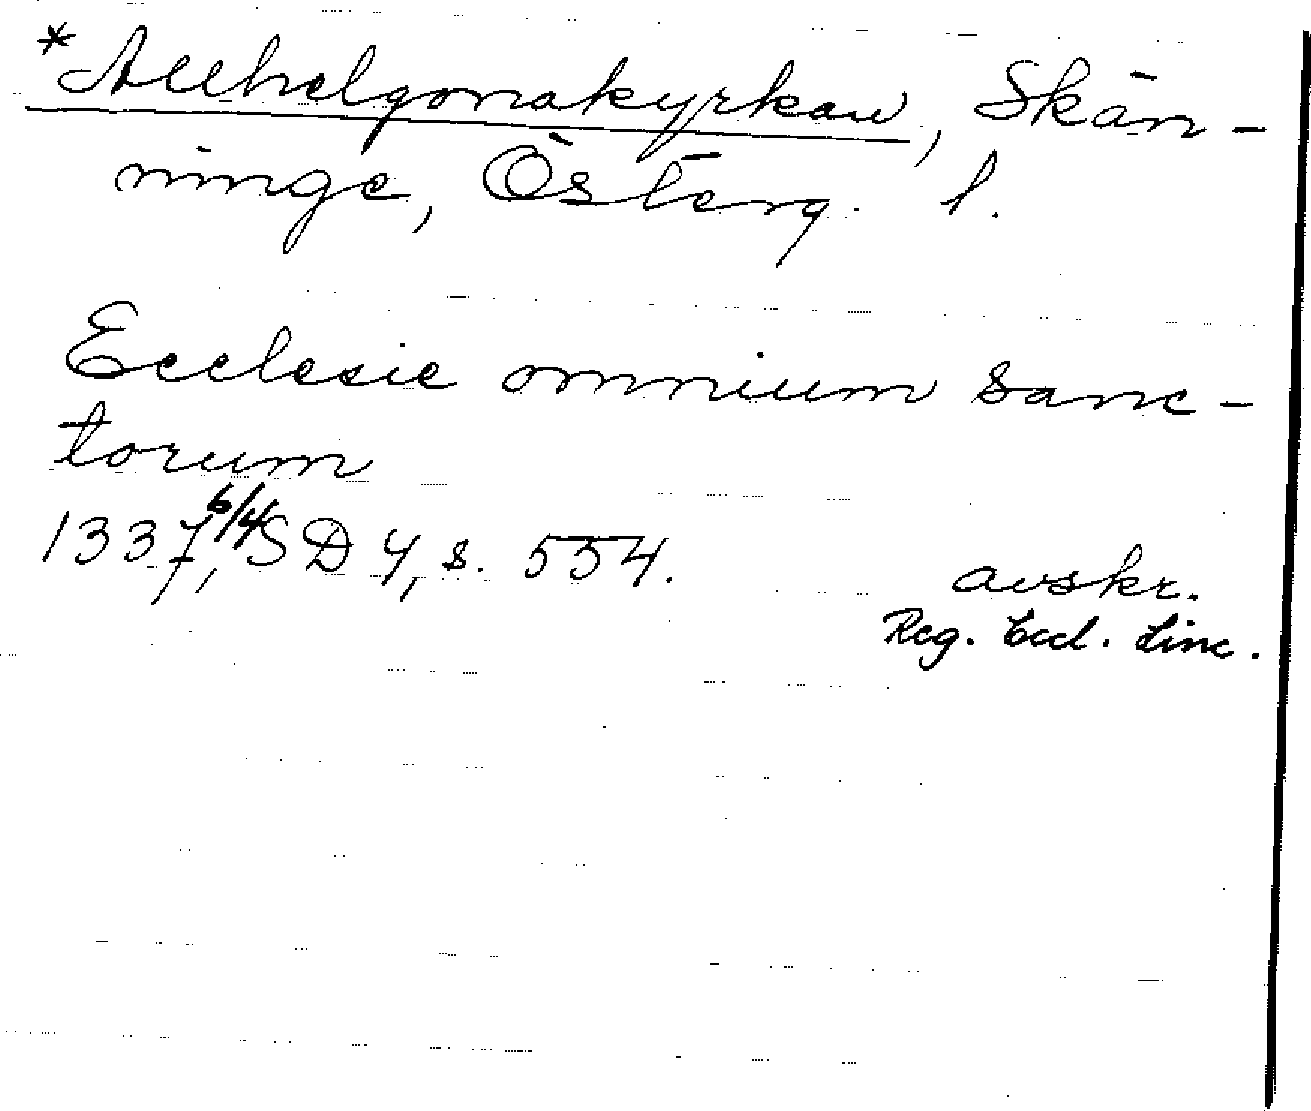 *Allhelgonakyrkan, Skän-
ninge, Österg. l.
Ecclesie omnium sanc-
torum
1337, 6/4 SD 4, s. 554.
avskr.
Reg. Eccl. Linc.